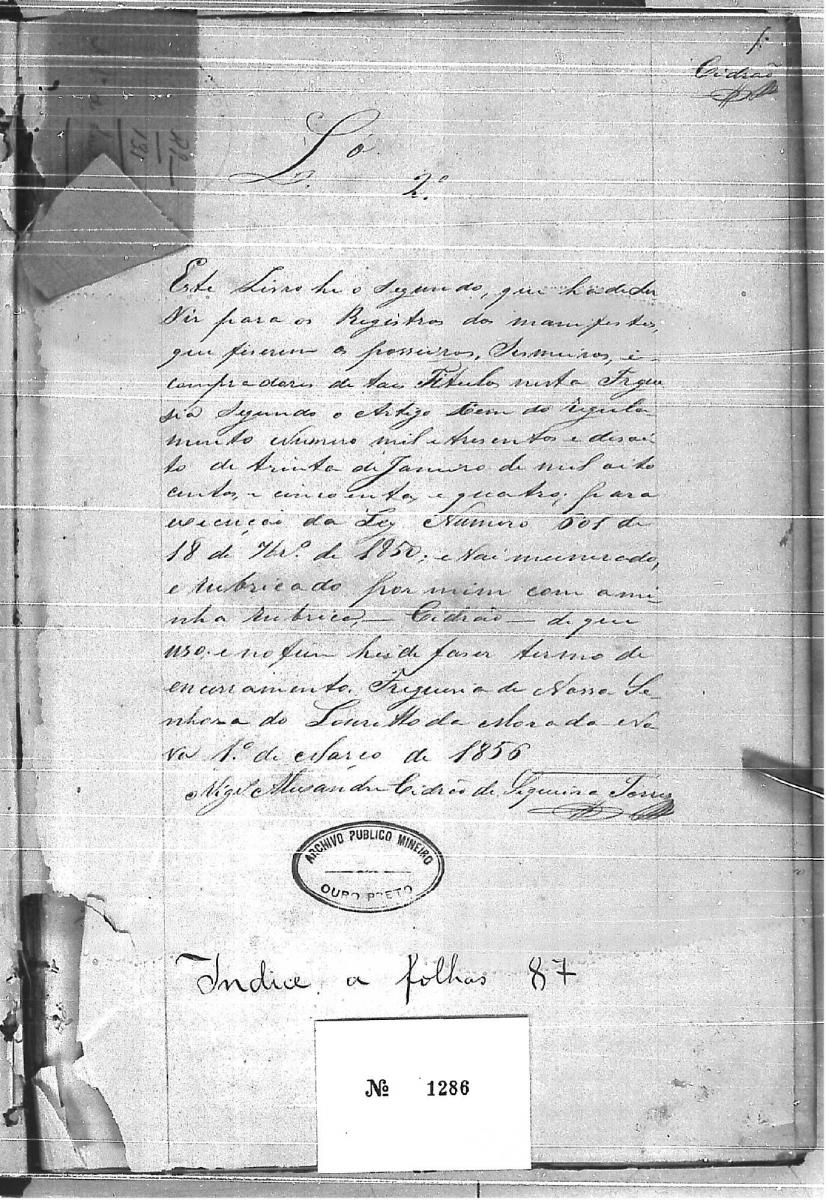 1
Cidrão
Lº
2.º
Este Livro he o segundo, que hade ser
Vir para os Registros dos manifestos,
que fiserem os posseiros, Sesmeiros, e
compradores de taes Titulos nesta Fregue
sia segundo o Artigo Cem do regula
mento Numero mil e tresentos e desoi
to de trinta de Janeiro de mil oito
centos e cincoenta e quatro; para
execução da Ley Numero 601 de
18 de 7br.º de 1850; e Vai numerado,
e rubricado por mim com a mi
nha rubrica, — Cidrão — de que
uso, e no fim hei de faser termo de
encerramento. Freguesia de Nossa Se
nhora do Louretto da Morada No
va 1.º de Março de 1856
Alexandre Cidrão de Siqueira Torres
ARCHIVO PUBLICO MINEIRO
OURO PRETO
Indice a folhas 87
№ 1286